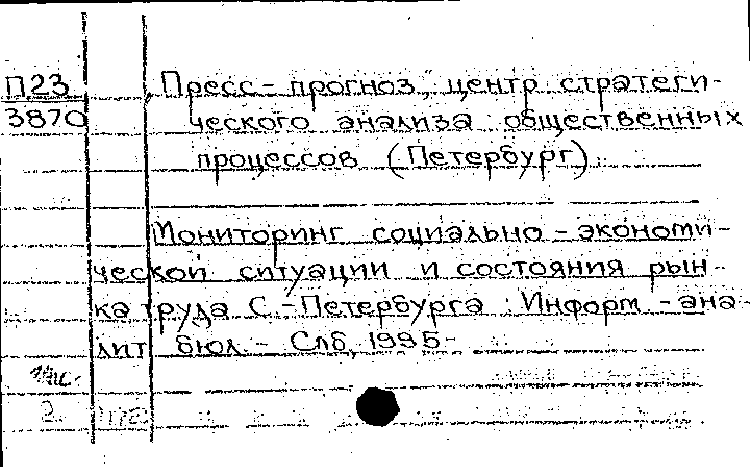 П23 Пресс-прогноз, центр стратеги-
3870 ческого анализа общественных
процессов (Петербург).
Мониторинг социально-экономи-
ческой ситуации и состояния рын-
ка труда С.-Петербурга: Информ.-ана-
лит. бюл. - Спб, 1995-
2.